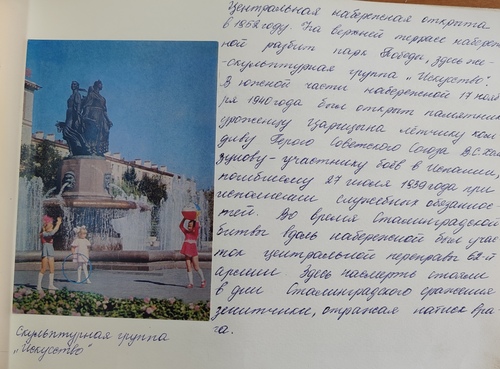 Центральная набережная открыта
в 1952 году. На верхней террасе набереж
ной разбит парк Победы, здесь же-
-скульптурная группа „Искусство".
В южной части набережной 17 нояб
ря 1940 года был открыт памятник
уроженцу Царицына лётчику ком
диву Герою Советского Союза В.С. Хол
зунову - участнику боёв в Испании,
погибшему 27 июля 1939 года при
исполнении служебных обязаннос-
тей. Во время Сталинградской
битвы вдоль набережной был учас
ток центральной переправы 62-й
армии. Здесь насмерть стояли
в дни Сталинградского сражения
зенитчики, отражая натиск вра-
га.
Скульптурная группа
„Искусство"